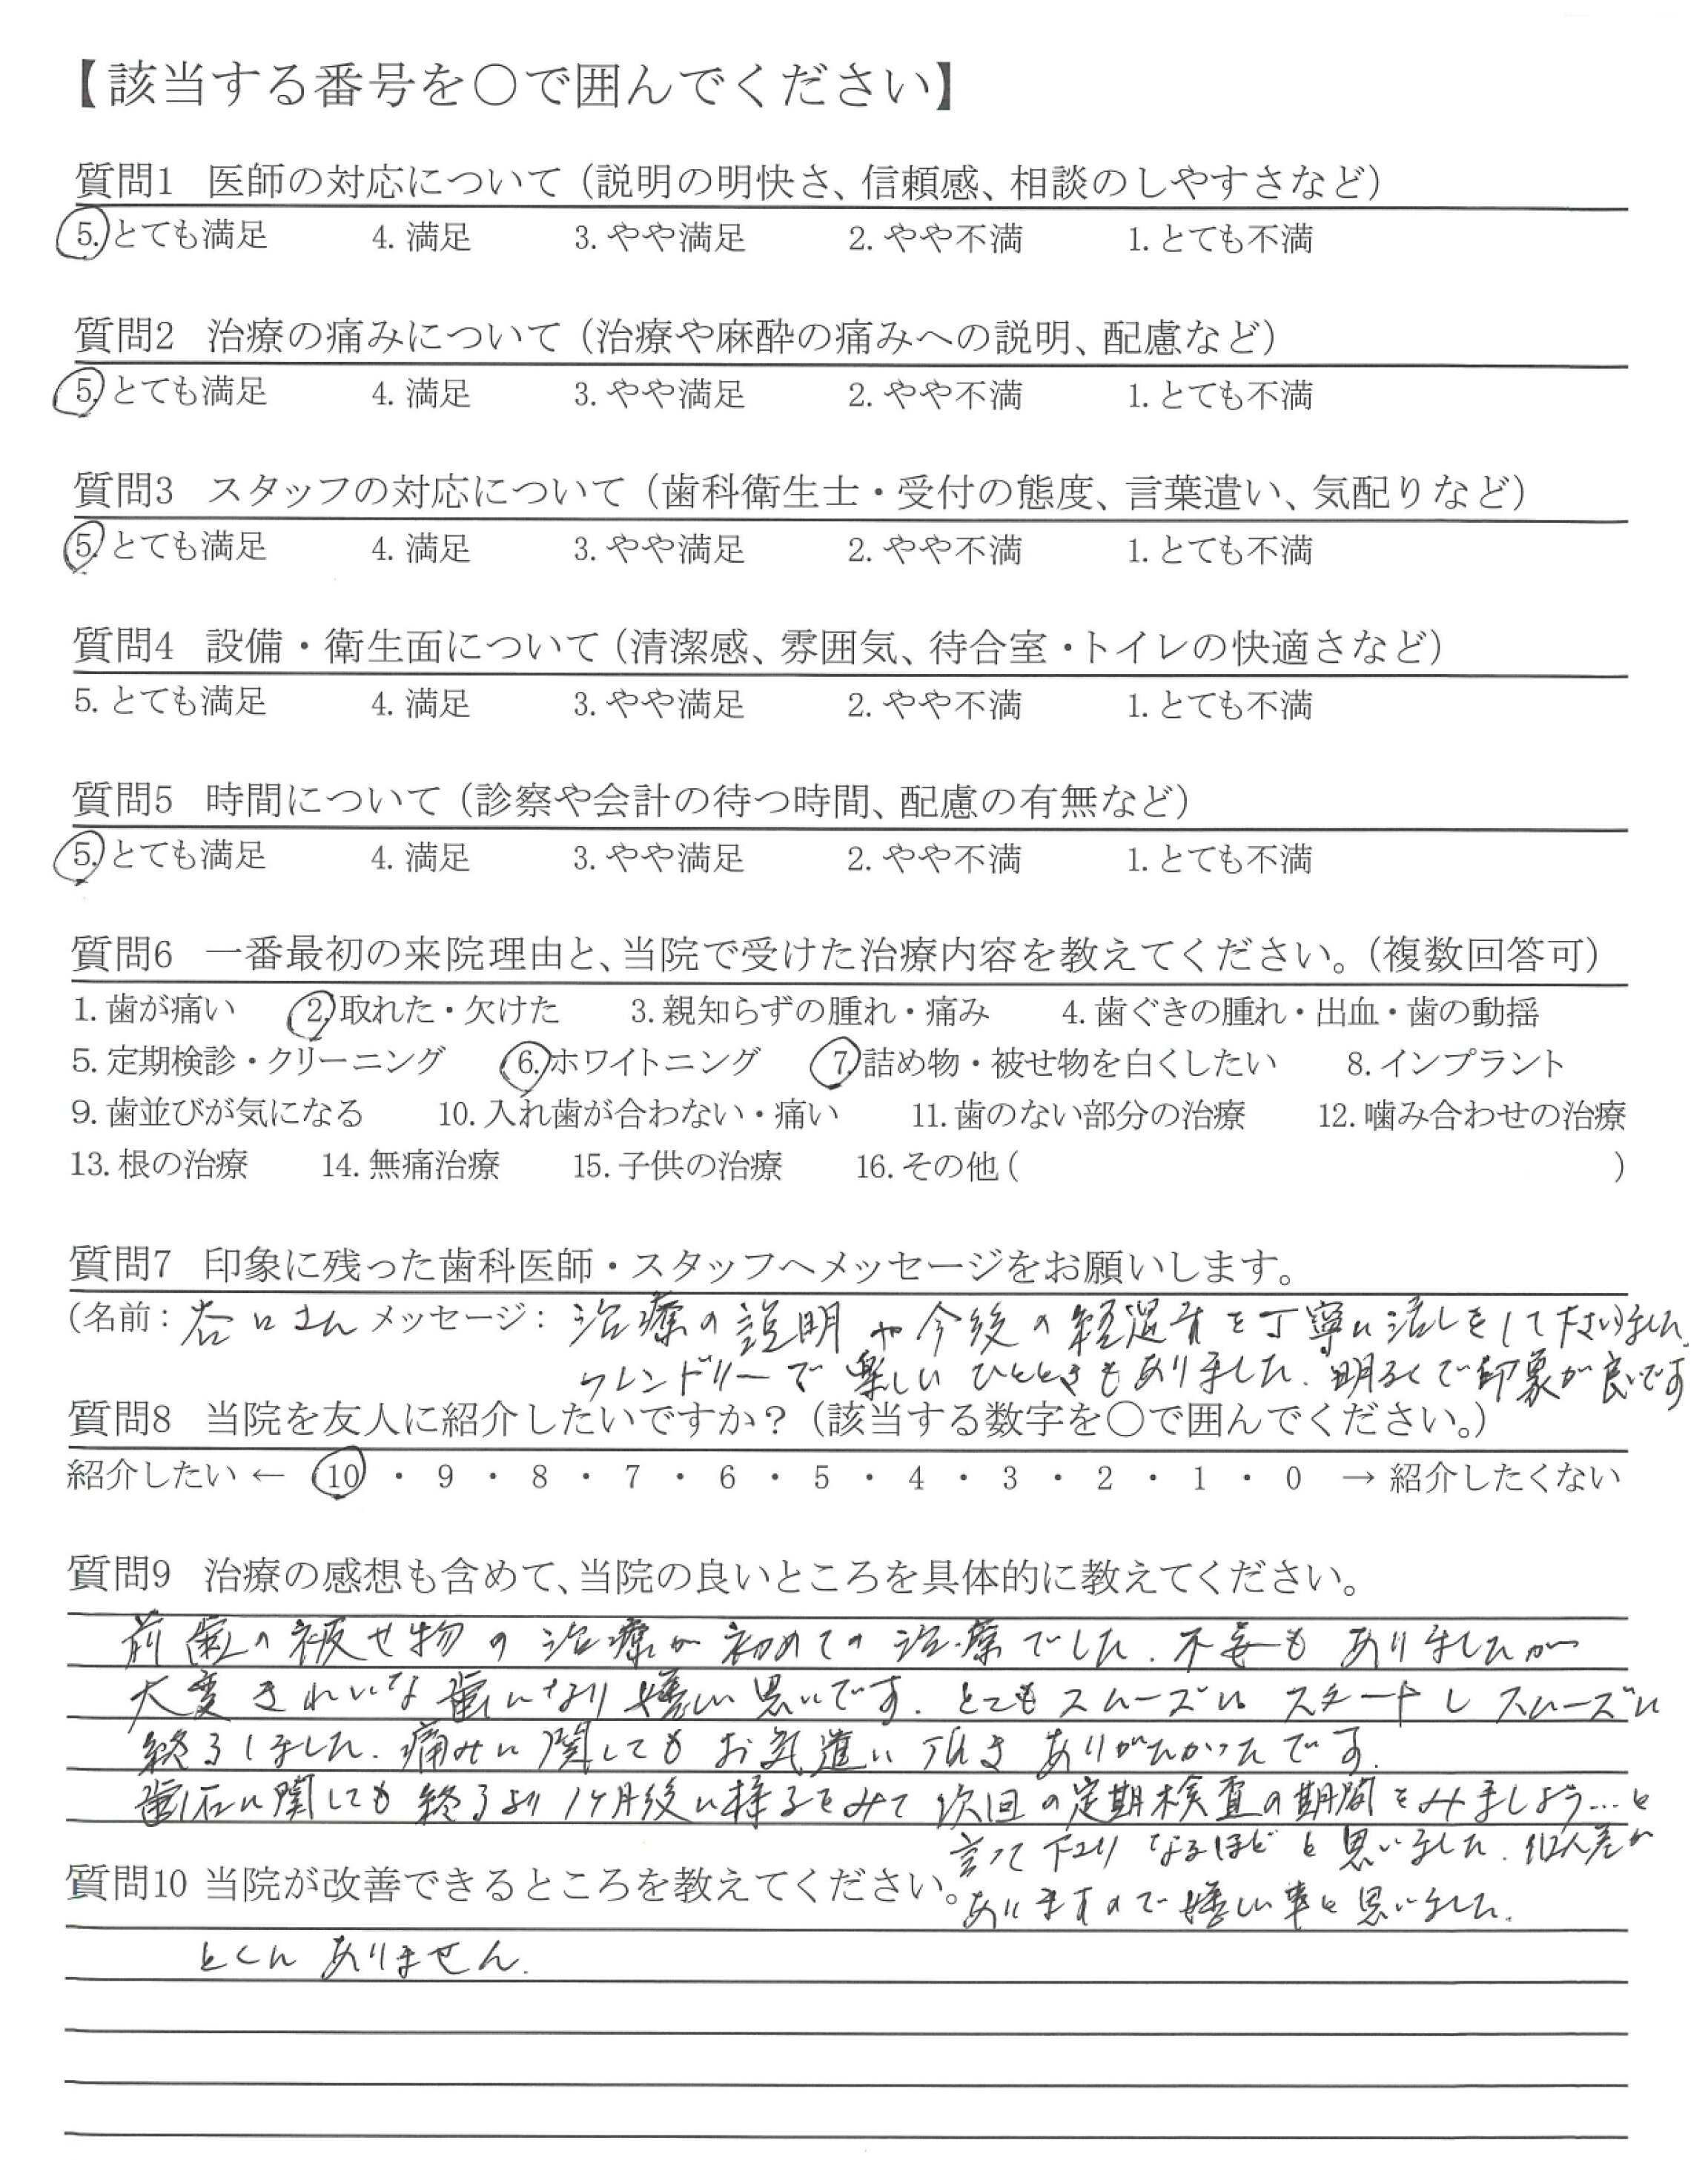 【該当する番号を○で囲んでください】
質問1 医師の対応について（説明の明快さ、信頼感、相談のしやすさなど）
5. とても満足 4. 満足 3. やや満足 2. やや不満 1. とても不満
質問2 治療の痛みについて（治療や麻酔の痛みへの説明、配慮など）
5. とても満足 4. 満足 3. やや満足 2. やや不満 1. とても不満
質問3 スタッフの対応について（歯科衛生士・受付の態度、言葉遣い、気配りなど）
5. とても満足 4. 満足 3. やや満足 2. やや不満 1. とても不満
質問4 設備・衛生面について（清潔感、雰囲気、待合室・トイレの快適さなど）
5. とても満足 4. 満足 3. やや満足 2. やや不満 1. とても不満
質問5 時間について（診察や会計の待つ時間、配慮の有無など）
5. とても満足 4. 満足 3. やや満足 2. やや不満 1. とても不満
質問6 一番最初の来院理由と、当院で受けた治療内容を教えてください。（複数回答可）
1. 歯が痛い 2. 取れた・欠けた 3. 親知らずの腫れ・痛み 4. 歯ぐきの腫れ・出血・歯の動揺
5. 定期検診・クリーニング 6. ホワイトニング 7. 詰め物・被せ物を白くしたい 8. インプラント
9. 歯並びが気になる 10. 入れ歯が合わない・痛い 11. 歯のない部分の治療 12. 噛み合わせの治療
13. 根の治療 14. 無痛治療 15. 子供の治療 16. その他（ ）
質問7 印象に残った歯科医師・スタッフへメッセージをお願いします。
（名前：谷口さん メッセージ： 治療の説明や今後の経過等を丁寧に話しをして下さいました。
フレンドリーで楽しいひとときもありました。明るくて印象が良いです
質問8 当院を友人に紹介したいですか？（該当する数字を○で囲んでください。）
紹介したい ← 10 ・ 9 ・ 8 ・ 7 ・ 6 ・ 5 ・ 4 ・ 3 ・ 2 ・ 1 ・ 0 → 紹介したくない
質問9 治療の感想も含めて、当院の良いところを具体的に教えてください。
前歯の被せ物の治療が初めての治療でした。不安もありましたが
大変きれいな歯になり嬉しい思いです。とてもスムーズにスタートしスムーズに
終了しました。痛みに関してもお気遣い頂きありがたかったです。
歯石に関しても終了より1ヶ月後に様子をみて次回の定期検査の期間をみましょう…と
言って下さり なるほどと思いました。個人差が
ありますので嬉しい事と思いました。
質問10 当院が改善できるところを教えてください。
とくにありません。